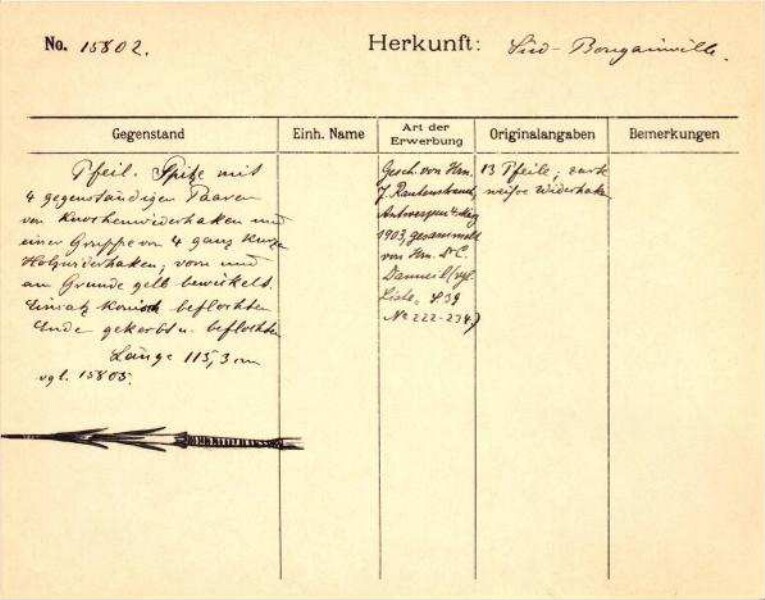 No. 15802.
Herkunft: Süd-Bougainville.
Gegenstand
Einh. Name
Art der Erwerbung
Originalangaben
Bemerkungen
Pfeil. Spitze mit
4 gegenständigen Paaren
von Knochenwiderhaken und
einer Gruppe von 4 ganz kurzen
Holzwiderhaken; vorn und
am Grunde gelb bewickelt.
Einsatz konisch beflochten
Ende gekerbt u. beflochten
Länge 115,3 cm
vgl. 15805.
Gesch. von Hrn.
J. Rautenstrauch,
Antwerpen
1903, gesammelt
von Hrn. Dr C.
Danneil (vgl.
Liste, S. 39
No 222-234)
13 Pfeile;
Widerhaken